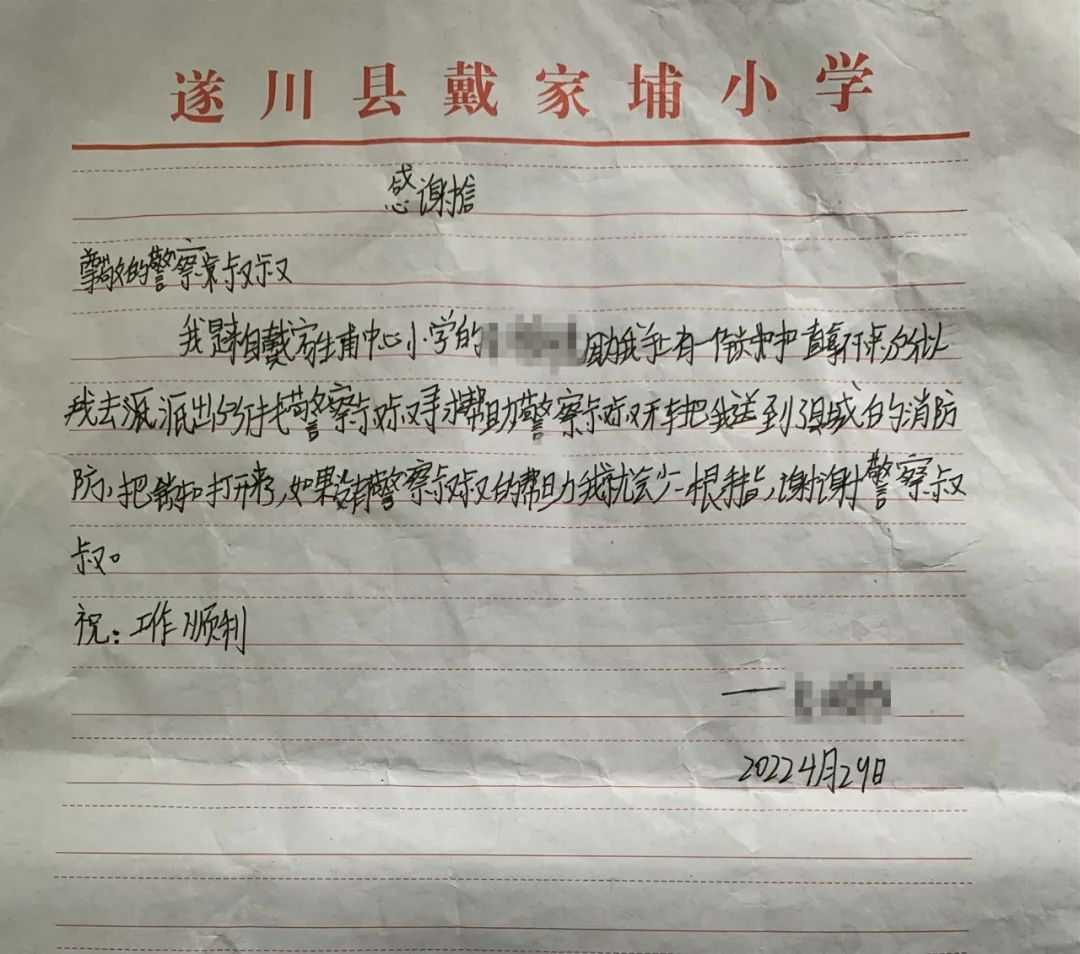 遂川县戴家埔小学
感谢信
尊敬的警察叔叔
我是来自戴家埔中心小学的 因为我手上有一个铁扣扣一直拿不下来所以
我去派派出所找警察叔叔寻求帮助警察叔叔开车把我送到了县城的消防
防,把锁扣打开来了,如果没有警察叔叔的帮助我就会少一根手指,谢谢警察叔
叔。
祝:工作顺利
2022 4月29日